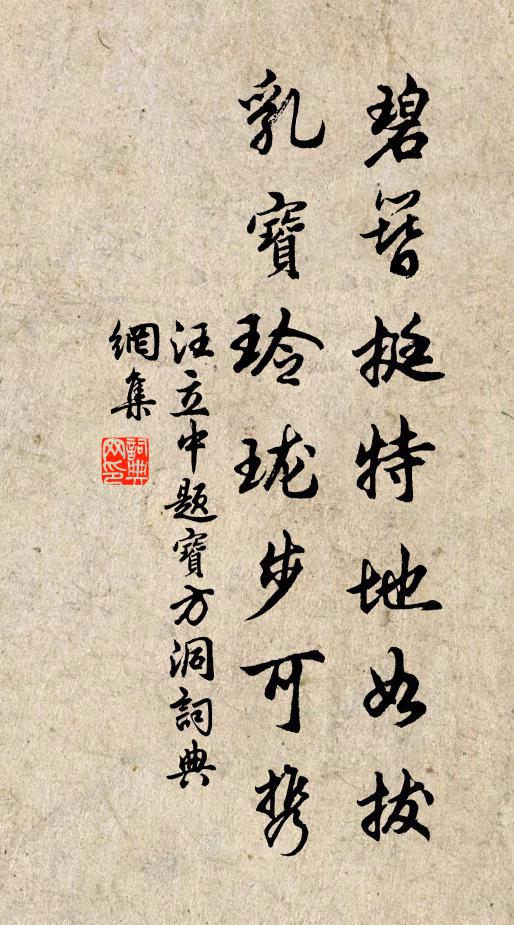 碧簪挺特地如拔
乳寶玲珑步可携
汪立中题寶方洞詞典
網集
詞典
网印